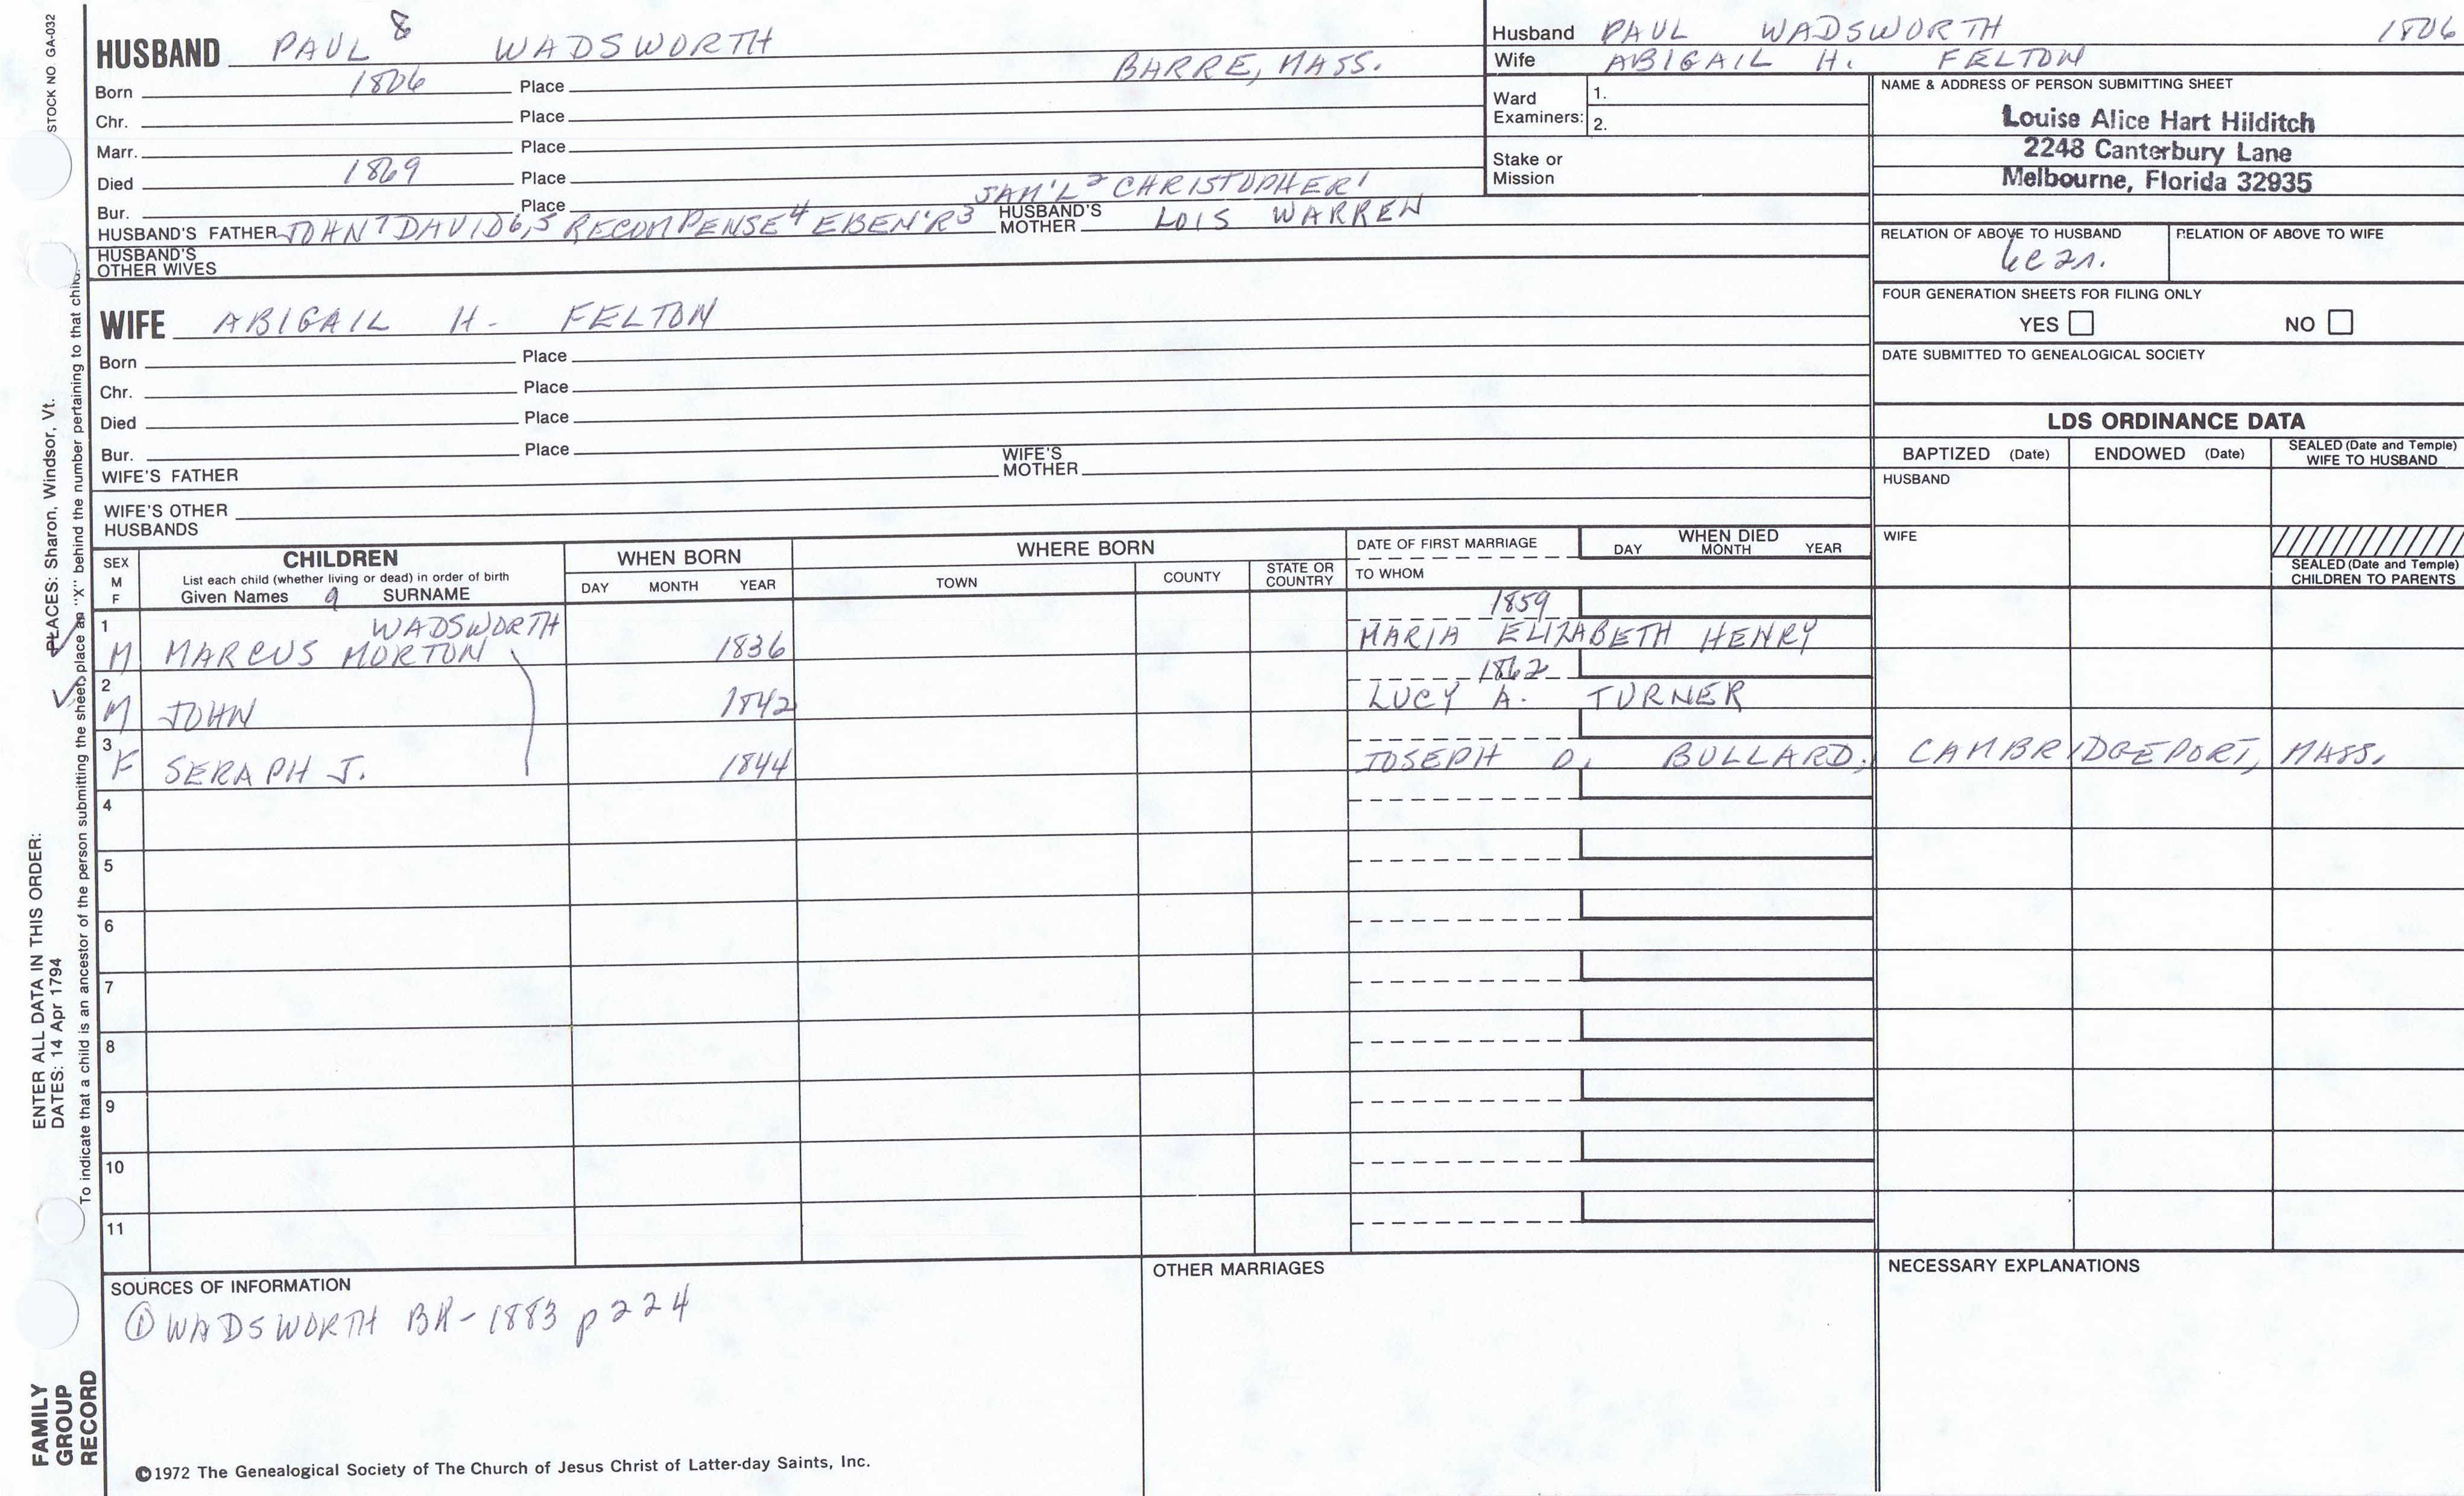 STOCK NO. GA-032
HUSBAND PAUL 8 WADSWORTH
Born 1806 Place BARRE, MASS.
Chr. Place
Marr. Place
Died 1869 Place
Bur. Place SAM'L 2 CHRISTOPHER 1
HUSBAND'S FATHER JOHN 7 DAVID 6,5 RECOMPENSE 4 EBEN'R 3 HUSBAND'S MOTHER LOIS WARREN
HUSBAND'S OTHER WIVES
WIFE ABIGAIL H. FELTON
Born Place
Chr. Place
Died Place
Bur. Place
WIFE'S FATHER WIFE'S MOTHER
WIFE'S OTHER HUSBANDS
Husband PAUL WADSWORTH 1806
Wife ABIGAIL H. FELTON
Ward Examiners: 1.
2.
Stake or Mission
NAME & ADDRESS OF PERSON SUBMITTING SHEET
Louise Alice Hart Hilditch
2248 Canterbury Lane
Melbourne, Florida 32935
RELATION OF ABOVE TO HUSBAND RELATION OF ABOVE TO WIFE
FOUR GENERATION SHEETS FOR FILING ONLY
YES NO
DATE SUBMITTED TO GENEALOGICAL SOCIETY
LDS ORDINANCE DATA
BAPTIZED (Date) ENDOWED (Date) SEALED (Date and Temple) WIFE TO HUSBAND
HUSBAND
WIFE
SEALED (Date and Temple) CHILDREN TO PARENTS
SEX M F CHILDREN WHEN BORN WHERE BORN DATE OF FIRST MARRIAGE WHEN DIED
List each child (whether living or dead) in order of birth
Given Names 9 SURNAME DAY MONTH YEAR TOWN COUNTY STATE OR COUNTRY TO WHOM DAY MONTH YEAR
1 WADSWORTH 1859
M MARCUS MORTON 1836 MARIA ELIZABETH HENRY
2 1862
M JOHN 1842 LUCY A. TURNER
3
F SERAPH J. 1844 JOSEPH O. BULLARD, CAMBRIDGEPORT, MASS.
4
5
6
7
8
9
10
11
SOURCES OF INFORMATION
① WADSWORTH BK-1883 p 224
OTHER MARRIAGES
NECESSARY EXPLANATIONS
©1972 The Genealogical Society of The Church of Jesus Christ of Latter-day Saints, Inc.
FAMILY GROUP RECORD
ENTER ALL DATA IN THIS ORDER:
DATES: 14 Apr 1794 PLACES: Sharon, Windsor, Vt.
To indicate that a child is an ancestor of the person submitting the sheet, place an "X" behind the number pertaining to that child.